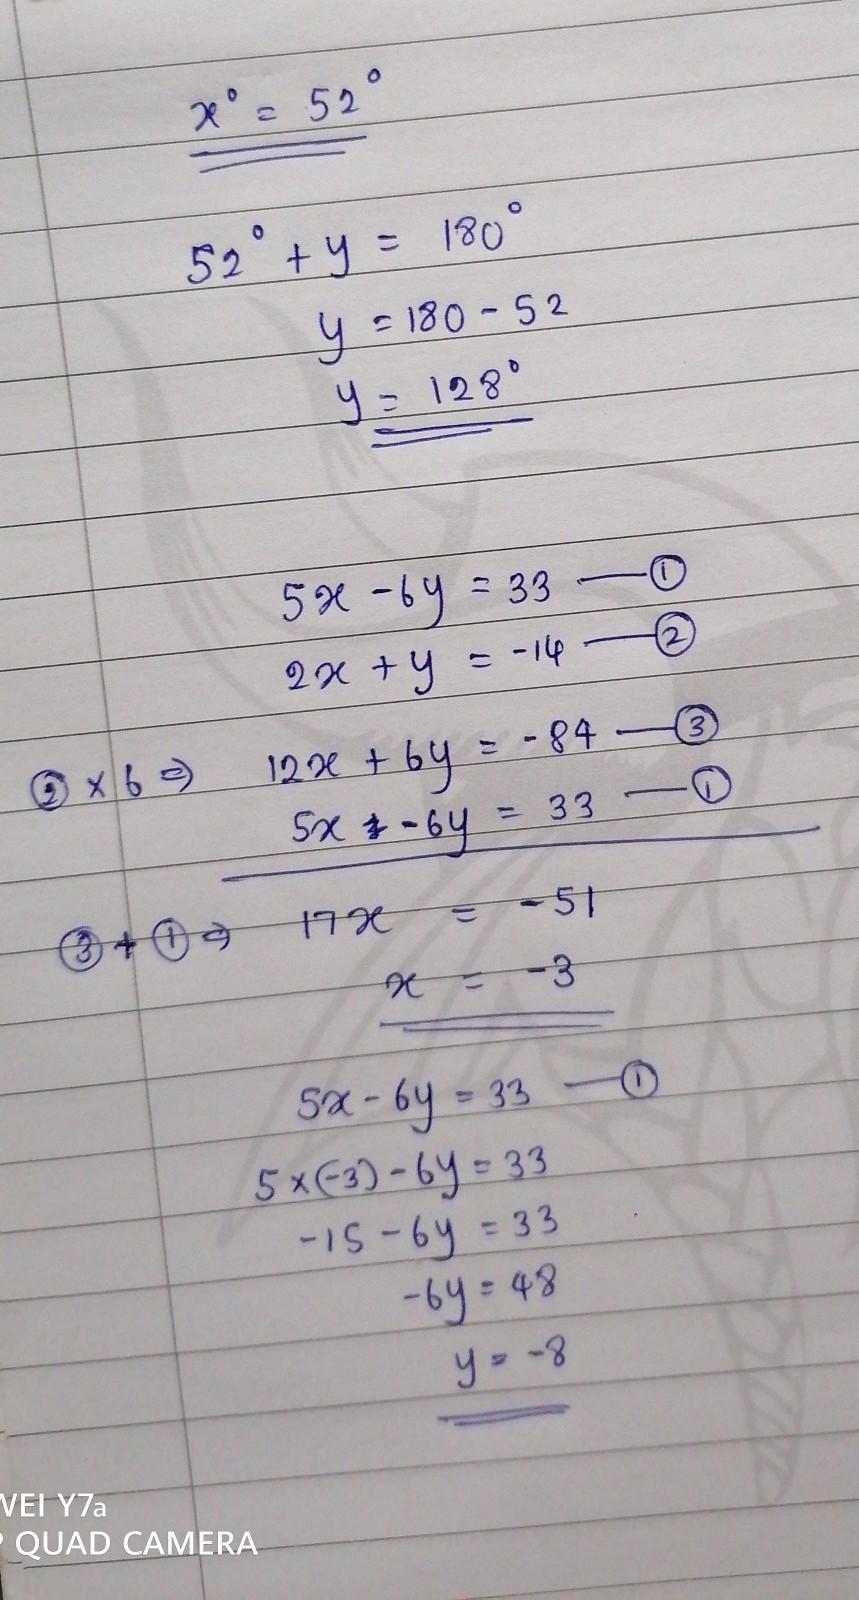 x° = 52°
52° + y = 180°
y = 180 - 52
y = 128°
5x - 6y = 33 — ①
2x + y = -14 — ②
② × 6 ⇒ 12x + 6y = -84 — ③
5x - 6y = 33 — ①
③ + ① ⇒ 17x = -51
x = -3
5x - 6y = 33 — ①
5 × (-3) - 6y = 33
-15 - 6y = 33
-6y = 48
y = -8
WEI Y7a
QUAD CAMERA